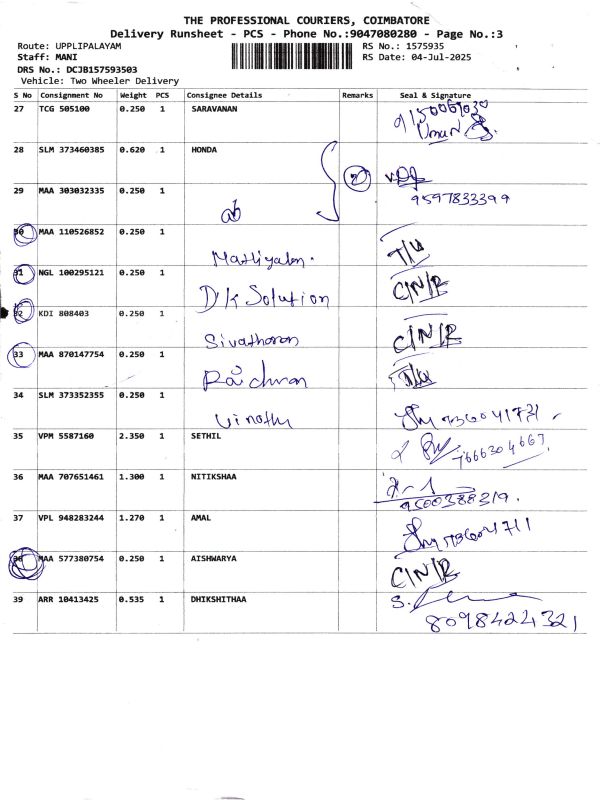 THE PROFESSIONAL COURIERS, COIMBATORE
Delivery Runsheet - PCS - Phone No.:9047080280 - Page No.:3
Route: UPPLIPALAYAM
RS No.: 1575935
Staff: MANI
RS Date: 04-Jul-2025
DRS No.: DCJB157593503
Vehicle: Two Wheeler Delivery
S No Consignment No Weight PCS Consignee Details Remarks Seal & Signature
27 TCG 505100 0.250 1 SARAVANAN
28 SLM 373460385 0.620 1 HONDA
29 MAA 303032335 0.250 1
9597833399
30 MAA 110526852 0.250 1 T/U
31 NGL 100295121 0.250 1 C/N/R
D/K Solution
32 KDI 808403 0.250 1 C/N/R
Sivatharan
33 MAA 870147754 0.250 1
34 SLM 373352355 0.250 1
35 VPM 5587160 2.350 1 SETHIL
7666304667
36 MAA 707651461 1.300 1 NITIKSHAA
9500388319.
37 VPL 948283244 1.270 1 AMAL
38 MAA 577380754 0.250 1 AISHWARYA C/N/R
39 ARR 10413425 0.535 1 DHIKSHITHAA
8098424321